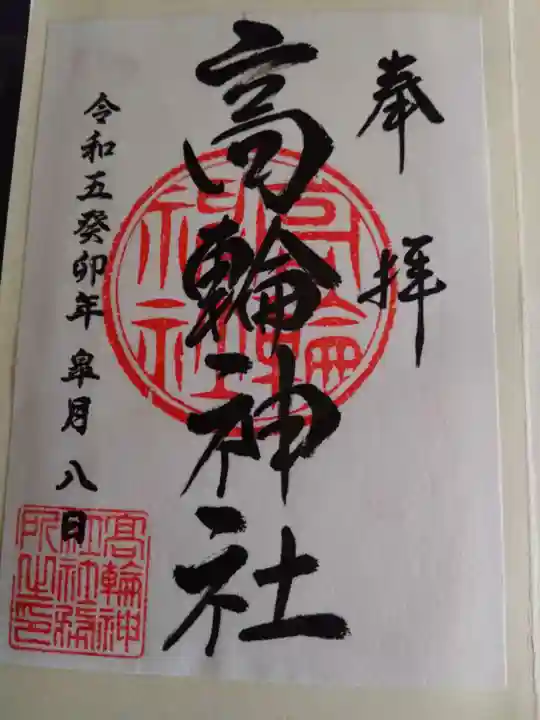 奉拝
高輪神社
令和五癸卯年 皐月八日
高輪神社
高輪神
社社務
所之印